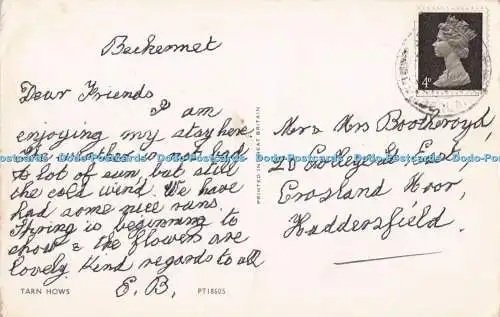 Beckermet
Dear Friends
I am
enjoying my stay here
The weather is not bad
A lot of sun, but still
the cold wind. We have
had some nice runs.
Spring is beginning to
show & the flowers are
lovely. Kind regards to all
E. B.
TARN HOWS
PT18605
PRINTED IN GREAT BRITAIN
4D
Mr & Mrs Bootheroyd
20 College St East,
Crosland Moor,
Huddersfield.
Dodo-Postcards Dodo-Postcards Dodo-Postcards Dodo-Postcards Dodo-Postcards Dodo-Postcards